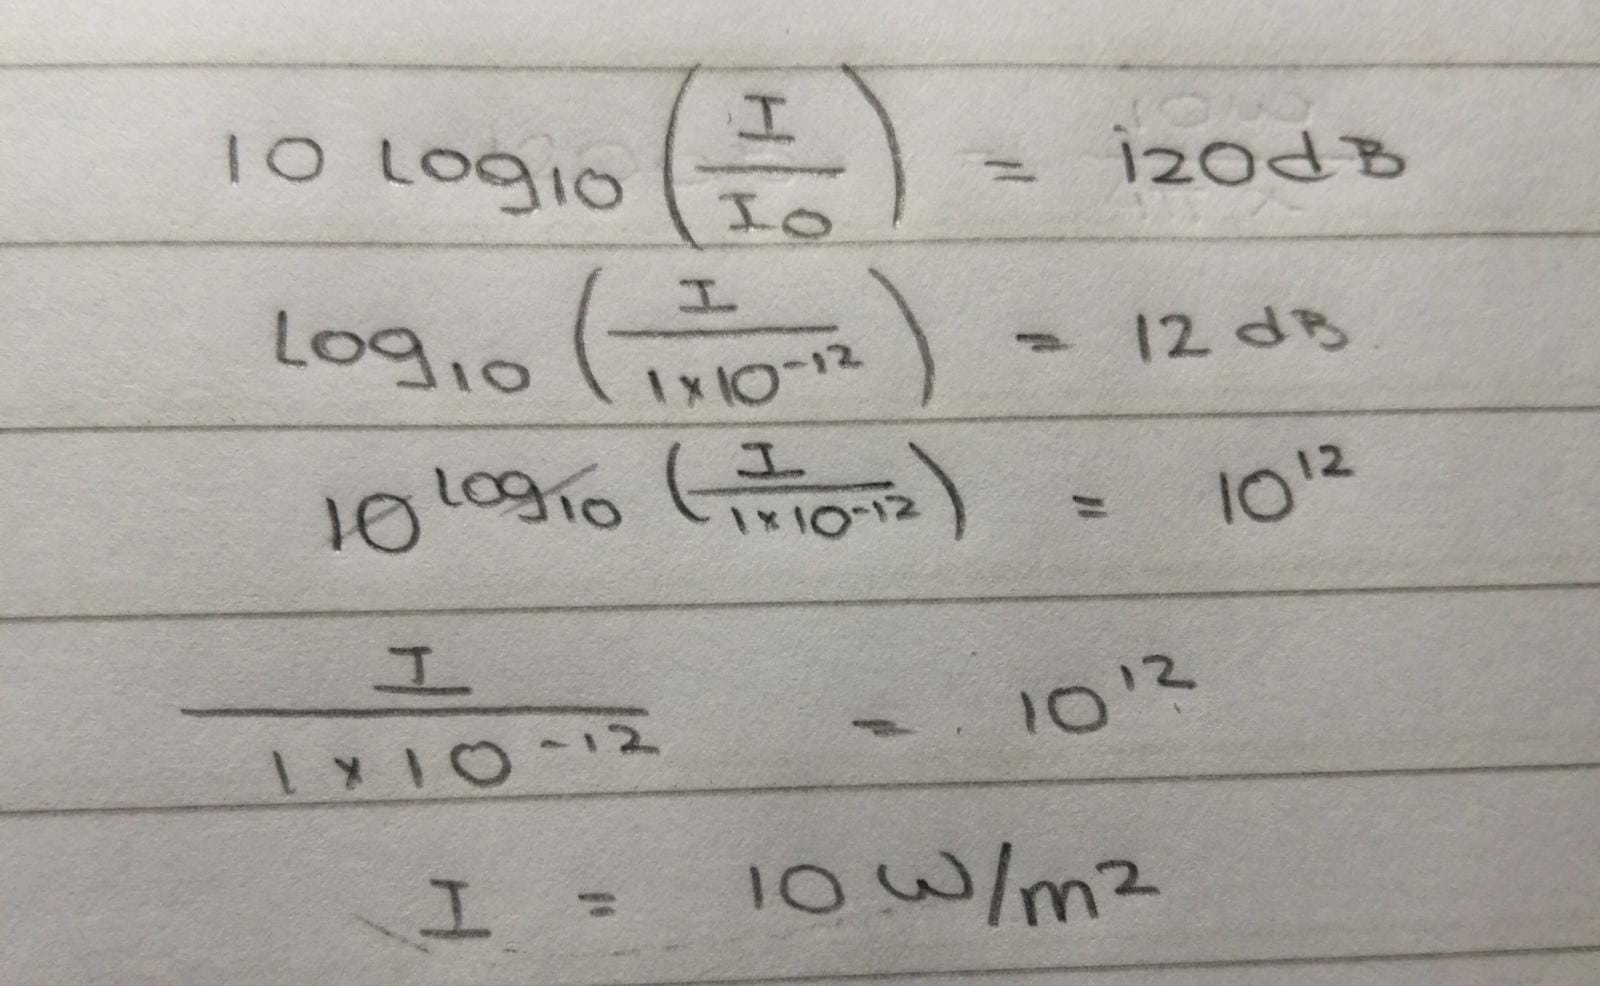 10 log₁₀ (I / I₀) = 120 dB
log₁₀ (I / 1×10⁻¹²) = 12 dB
10^log₁₀ (I / 1×10⁻¹²) = 10¹²
I / 1×10⁻¹² = 10¹²
I = 10 W/m²